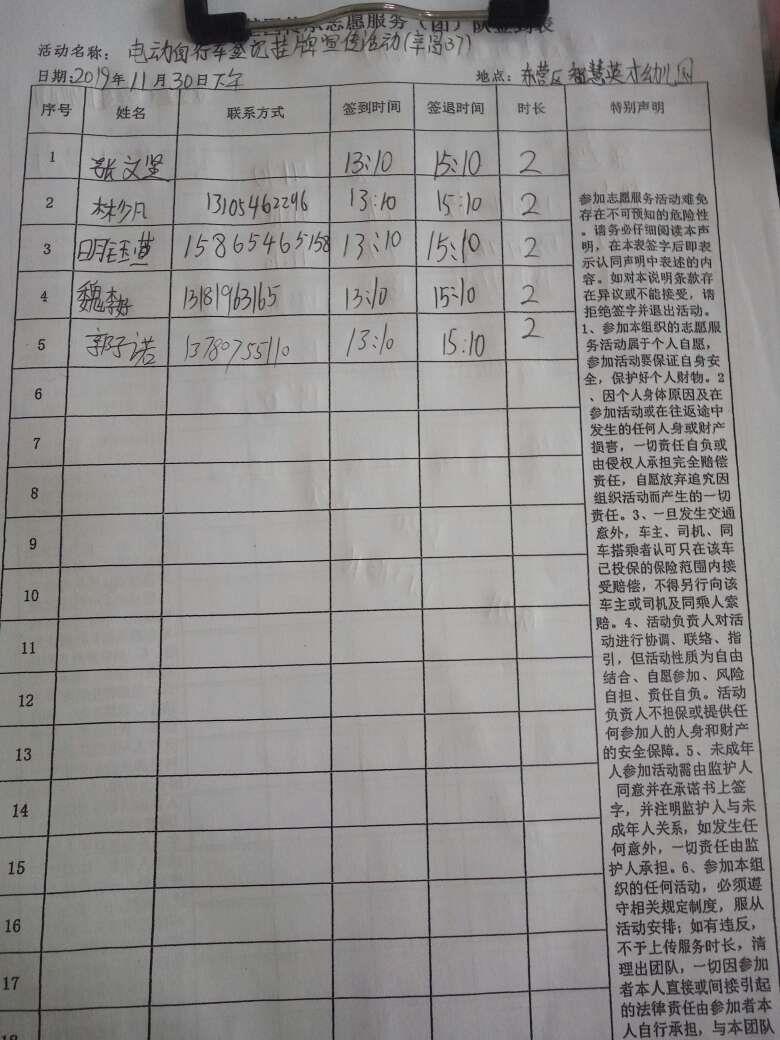 志愿服务（团）队签到表
活动名称：电动自行车登记挂牌宣传活动(辛店37)
日期:2019年11月30日下午 地点：东营区智慧英才幼儿园
序号 姓名 联系方式 签到时间 签退时间 时长 特别声明
1 张文坚 13:10 15:10 2
2 林少凡 13105462296 13:10 15:10 2
3 15865465158 13:10 15:10 2
4 魏 13181963165 13:10 15:10 2
5 郭子诺 13780755110 13:10 15:10 2
6
7
8
9
10
11
12
13
14
15
16
17
18
参加志愿服务活动难免
存在不可预知的危险性
。请务必仔细阅读本声
明，在本表签字后即表
示认同声明中表述的内
容。如对本说明条款存
在异议或不能接受，请
拒绝签字并退出活动。
1、参加本组织的志愿服
务活动属于个人自愿，
参加活动要保证自身安
全，保护好个人财物。2
、因个人身体原因及在
参加活动或在往返途中
发生的任何人身或财产
损害，一切责任自负或
由侵权人承担完全赔偿
责任，自愿放弃追究因
组织活动而产生的一切
责任。3、一旦发生交通
意外，车主、司机、同
车搭乘者认可只在该车
已投保的保险范围内接
受赔偿，不得另行向该
车主或司机及同乘人索
赔。4、活动负责人对活
动进行协调、联络、指
引，但活动性质为自由
结合、自愿参加、风险
自担、责任自负。活动
负责人不担保或提供任
何参加人的人身和财产
的安全保障。5、未成年
人参加活动需由监护人
同意并在承诺书上签
字，并注明监护人与未
成年人关系，如发生任
何意外，一切责任由监
护人承担。6、参加本组
织的任何活动，必须遵
守相关规定制度，服从
活动安排；如有违反，
不予上传服务时长，清
理出团队，一切因参加
者本人直接或间接引起
的法律责任由参加者本
人自行承担，与本团队